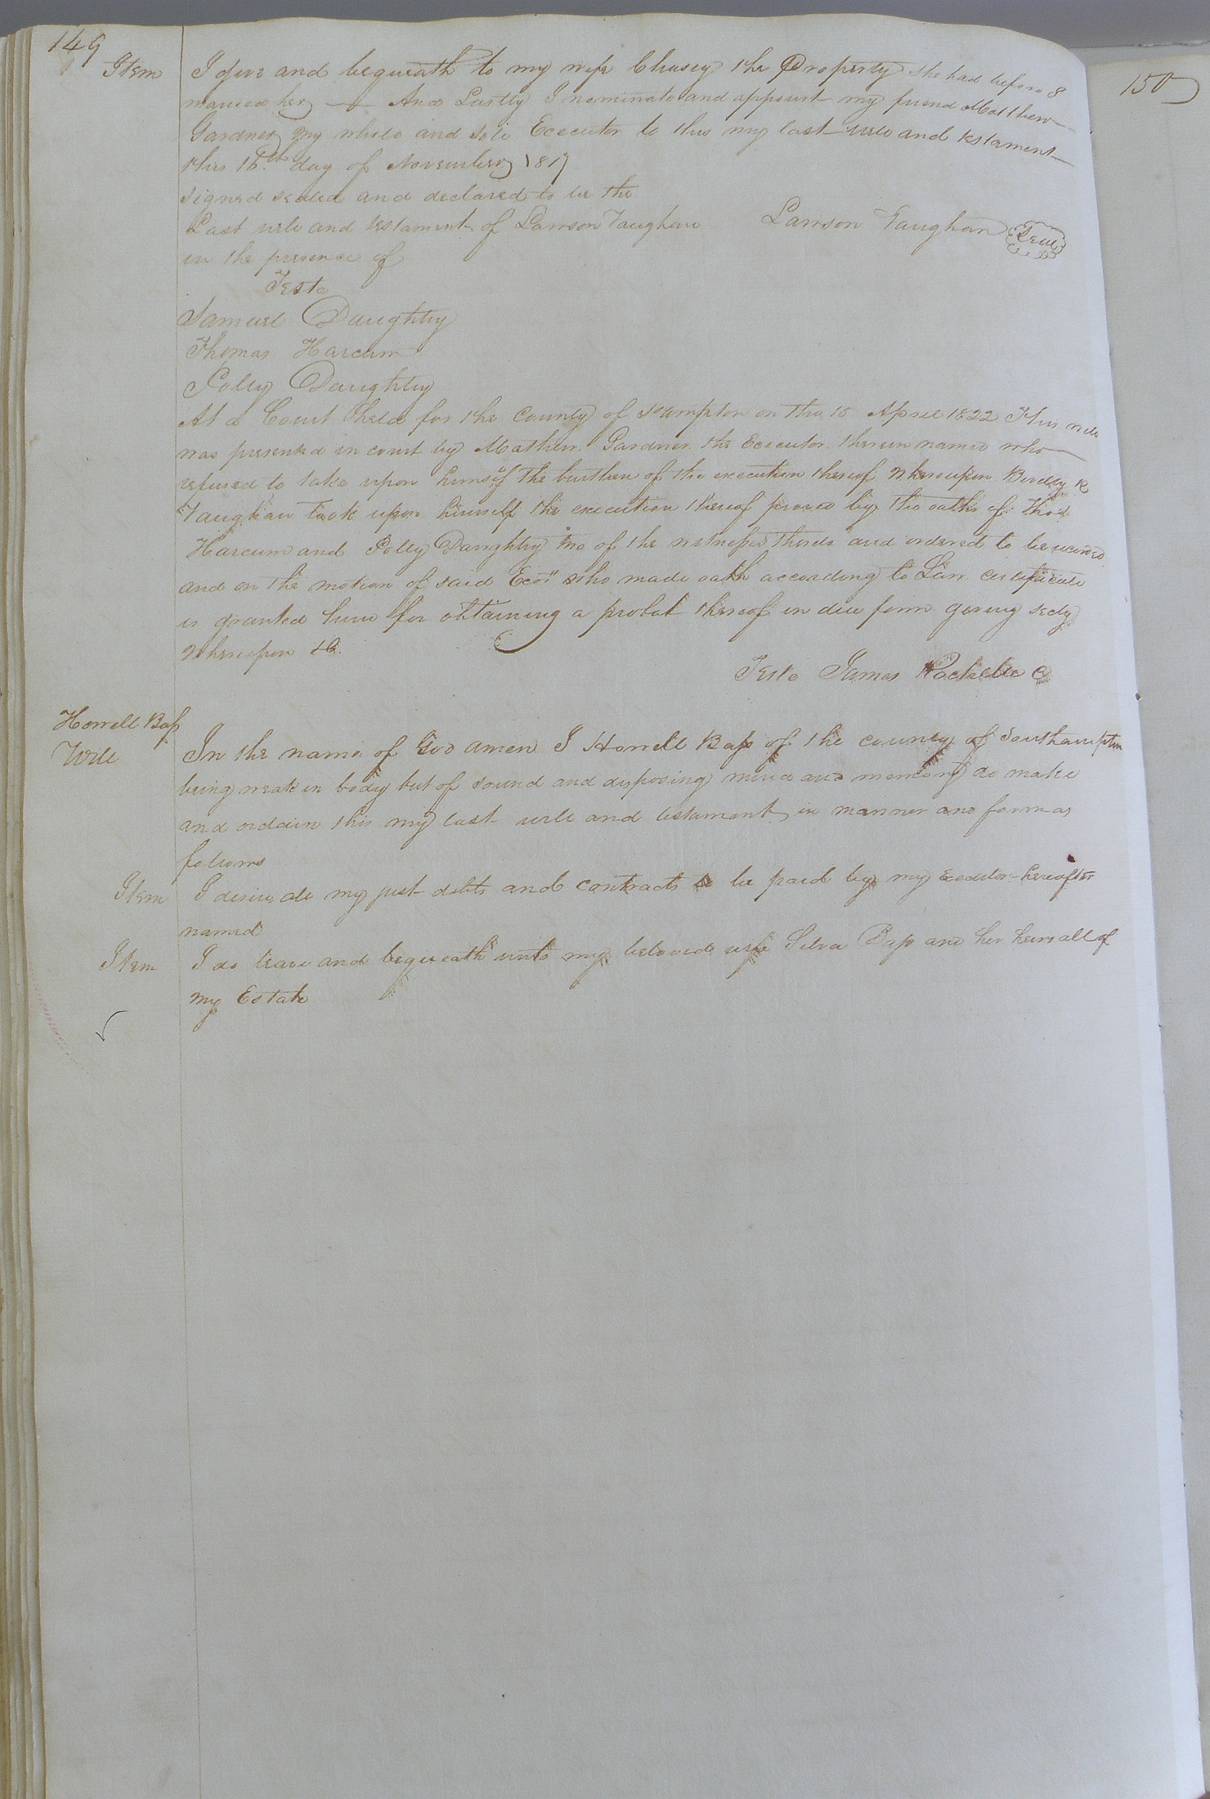 149
150
Item I give and bequeath to my wife Chasey the Property she had before I
married her And Lastly I nominate and appoint my friend Matthew
Gardner my whole and sole Executor to this my last will and testament
this 16th day of November 1817
signed sealed and declared to be the
Last will and testament of Lawson Vaughan Lawson Vaughan Seal
in the presence of
Teste
Samuel Daughtry
Thomas Harcum
Polly Daughtry
At a Court held for the County of So ampton on the 15 April 1822 This will
was presented in court by Mathew Gardner the Executor therein named who
refused to take upon himself the burthen of the execution thereof Whereupon R
Vaughan took upon himself the execution thereof proved by the oaths of Thos
Harcum and Polly Daughtry two of the witnesses thereto and ordered to be recorded
and on the motion of said Ecor who made oath according to Law certificate
is granted him for obtaining a probat thereof in due form giving secty
Whereupon &c.
Teste James Rochelle C
Howell Bass
Will In the name of God amen I Howell Bass of the county of Southampton
being weak in body but of sound and disposing mind and memory do make
and ordain this my last will and testament in manner and form as
follows
Item I desire all my just debts and contracts to be paid by my Executor hereafter
named
Item I do leave and bequeath unto my beloved wife Silva Bass and her heirs all of
my Estate